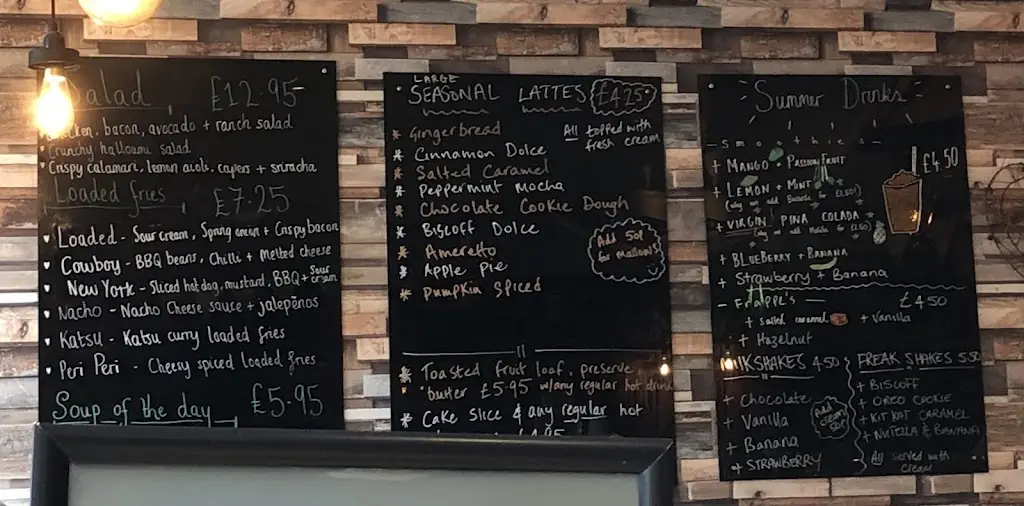 Salad £12.95
bacon, avocado + ranch salad
Crunchy halloumi salad
Crispy calamari, lemon aioli, capers + sriracha
Loaded fries £7.25
Loaded - Sour cream, Spring onion + Crispy bacon
Cowboy - BBQ beans, Chilli + Melted cheese
New York - Sliced hot dog, mustard, BBQ + Sour cream
Nacho - Nacho Cheese sauce + jalepenos
Katsu - Katsu curry loaded fries
Peri Peri - Cheesy spiced loaded fries
Soup of the day £5.95
LARGE
SEASONAL LATTES £4.25
All topped with
fresh cream
* Gingerbread
* Cinnamon Dolce
* Salted Caramel
* Peppermint Mocha
* Chocolate Cookie Dough
* Biscoff Dolce
* Ameretto
* Apple Pie
* Pumpkin Spiced
Add 50p
for mallows
* Toasted fruit loaf, preserve,
butter £5.95 w/any regular hot drink
* Cake slice & any regular hot
£4.95
Summer Drinks
- Smoothies -
£4.50
+ MANGO + PASSIONFRUIT
+ LEMON + MINT
(why not add Bacardi for £2.50!)
+ VIRGIN PINA COLADA
(why not add Malibu for £2.50)
+ BLUEBERRY + BANANA
+ Strawberry + Banana
- Frappe's - £4.50
+ salted caramel + Vanilla
+ Hazelnut
MILKSHAKES 4.50
+ Chocolate
+ Vanilla
+ Banana
+ STRAWBERRY
Add
cream
50p
FREAK SHAKES 5.50
+ BISCOFF
+ OREO COOKIE
+ KIT KAT CARAMEL
+ NUTELLA & BANANA
All served with
cream